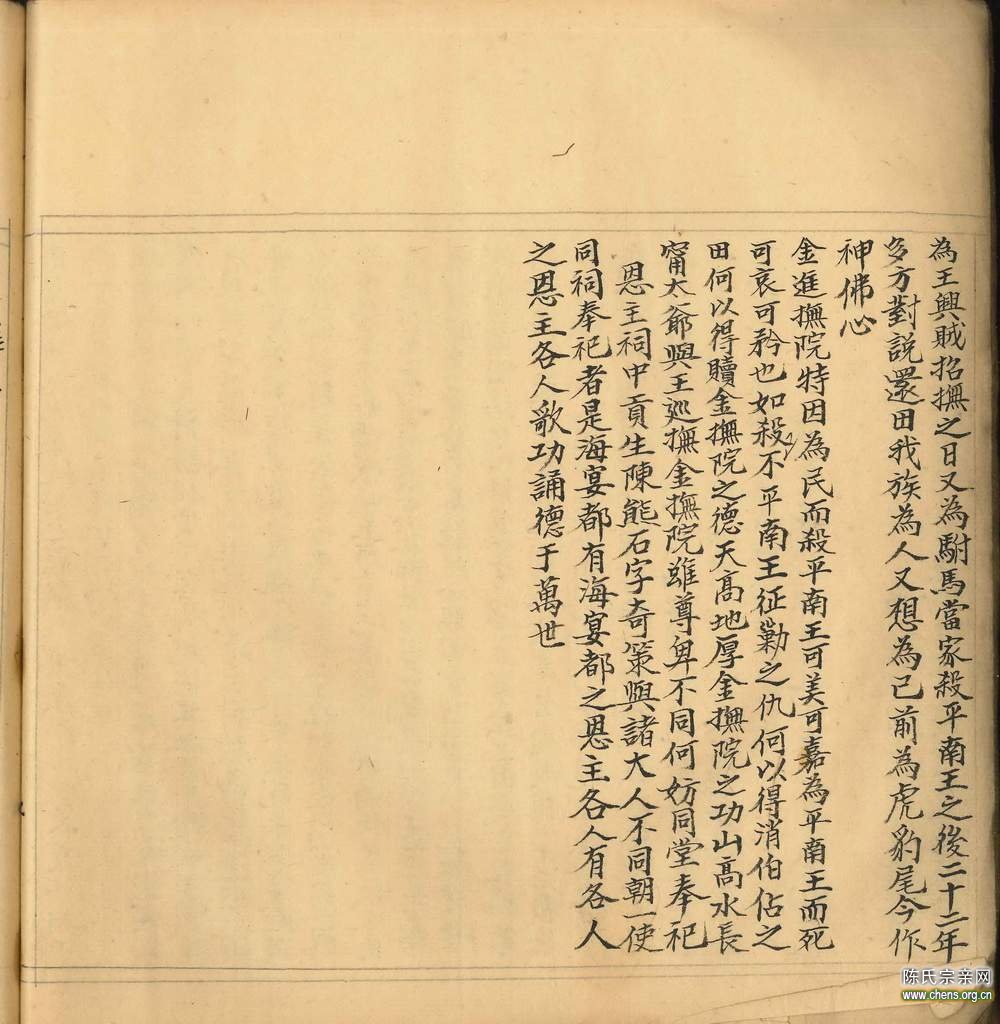 為王興賊招撫之日又為駙馬當家殺平南王之後二十二年
多方對說還田我族為人又想為己前為虎豹尾今作
神佛心
金進撫院特因為民而殺平南王可美可嘉為平南王而死
可哀可矜也如殺不平南王征勦之仇何以得消伯佔之
田何以得贖金撫院之德天高地厚金撫院之功山高水長
甯大爺與王巡撫金撫院雖尊卑不同何妨同堂奉祀
恩主祠中貢生陳能石字奇策與諸大人不同朝一使
同祠奉祀者是海宴都有海宴都之恩主各人有各人
之恩主各人歌功誦德于萬世
陈氏宗亲网
www.chens.org.cn